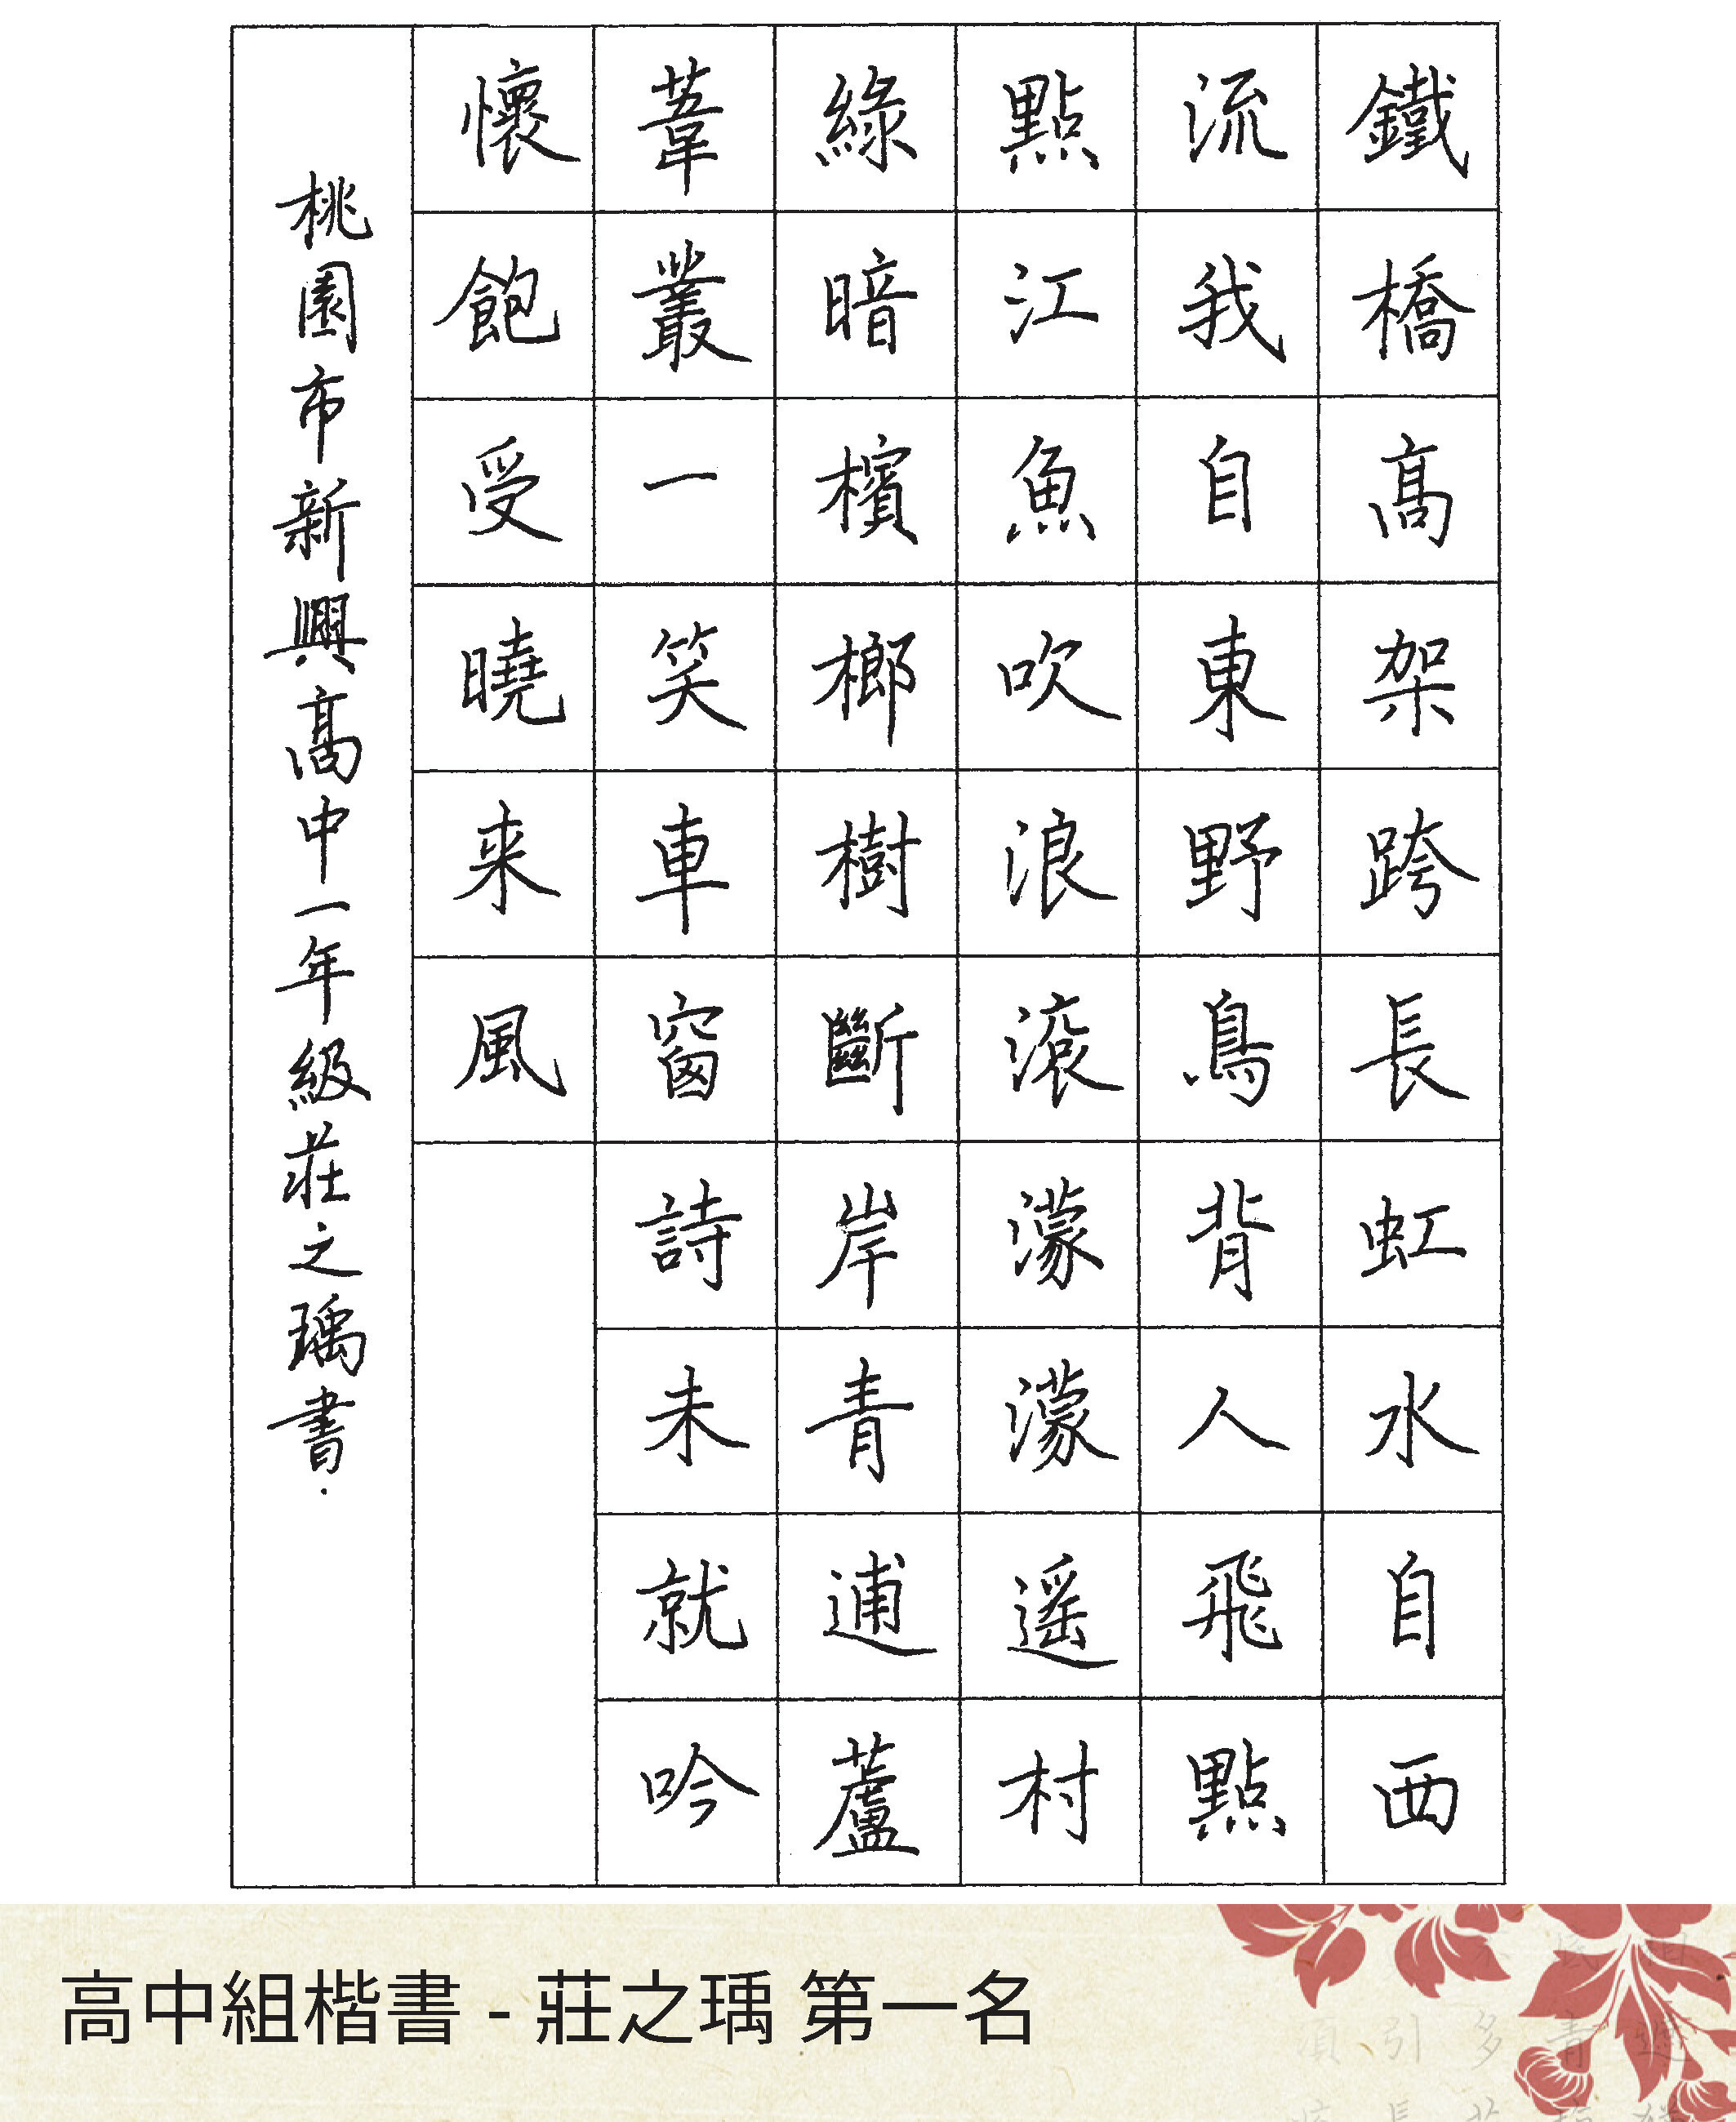 鐵橋高架跨長虹水自西
流我自東野鳥背人飛點
點江魚吹浪滾濛濛遥村
綠暗檳榔樹斷岸青逋蘆
葦叢一笑車窗詩未就吟
懷飽受曉来風
桃園市新興高中一年級莊之瑀書.
高中組楷書 - 莊之瑀 第一名